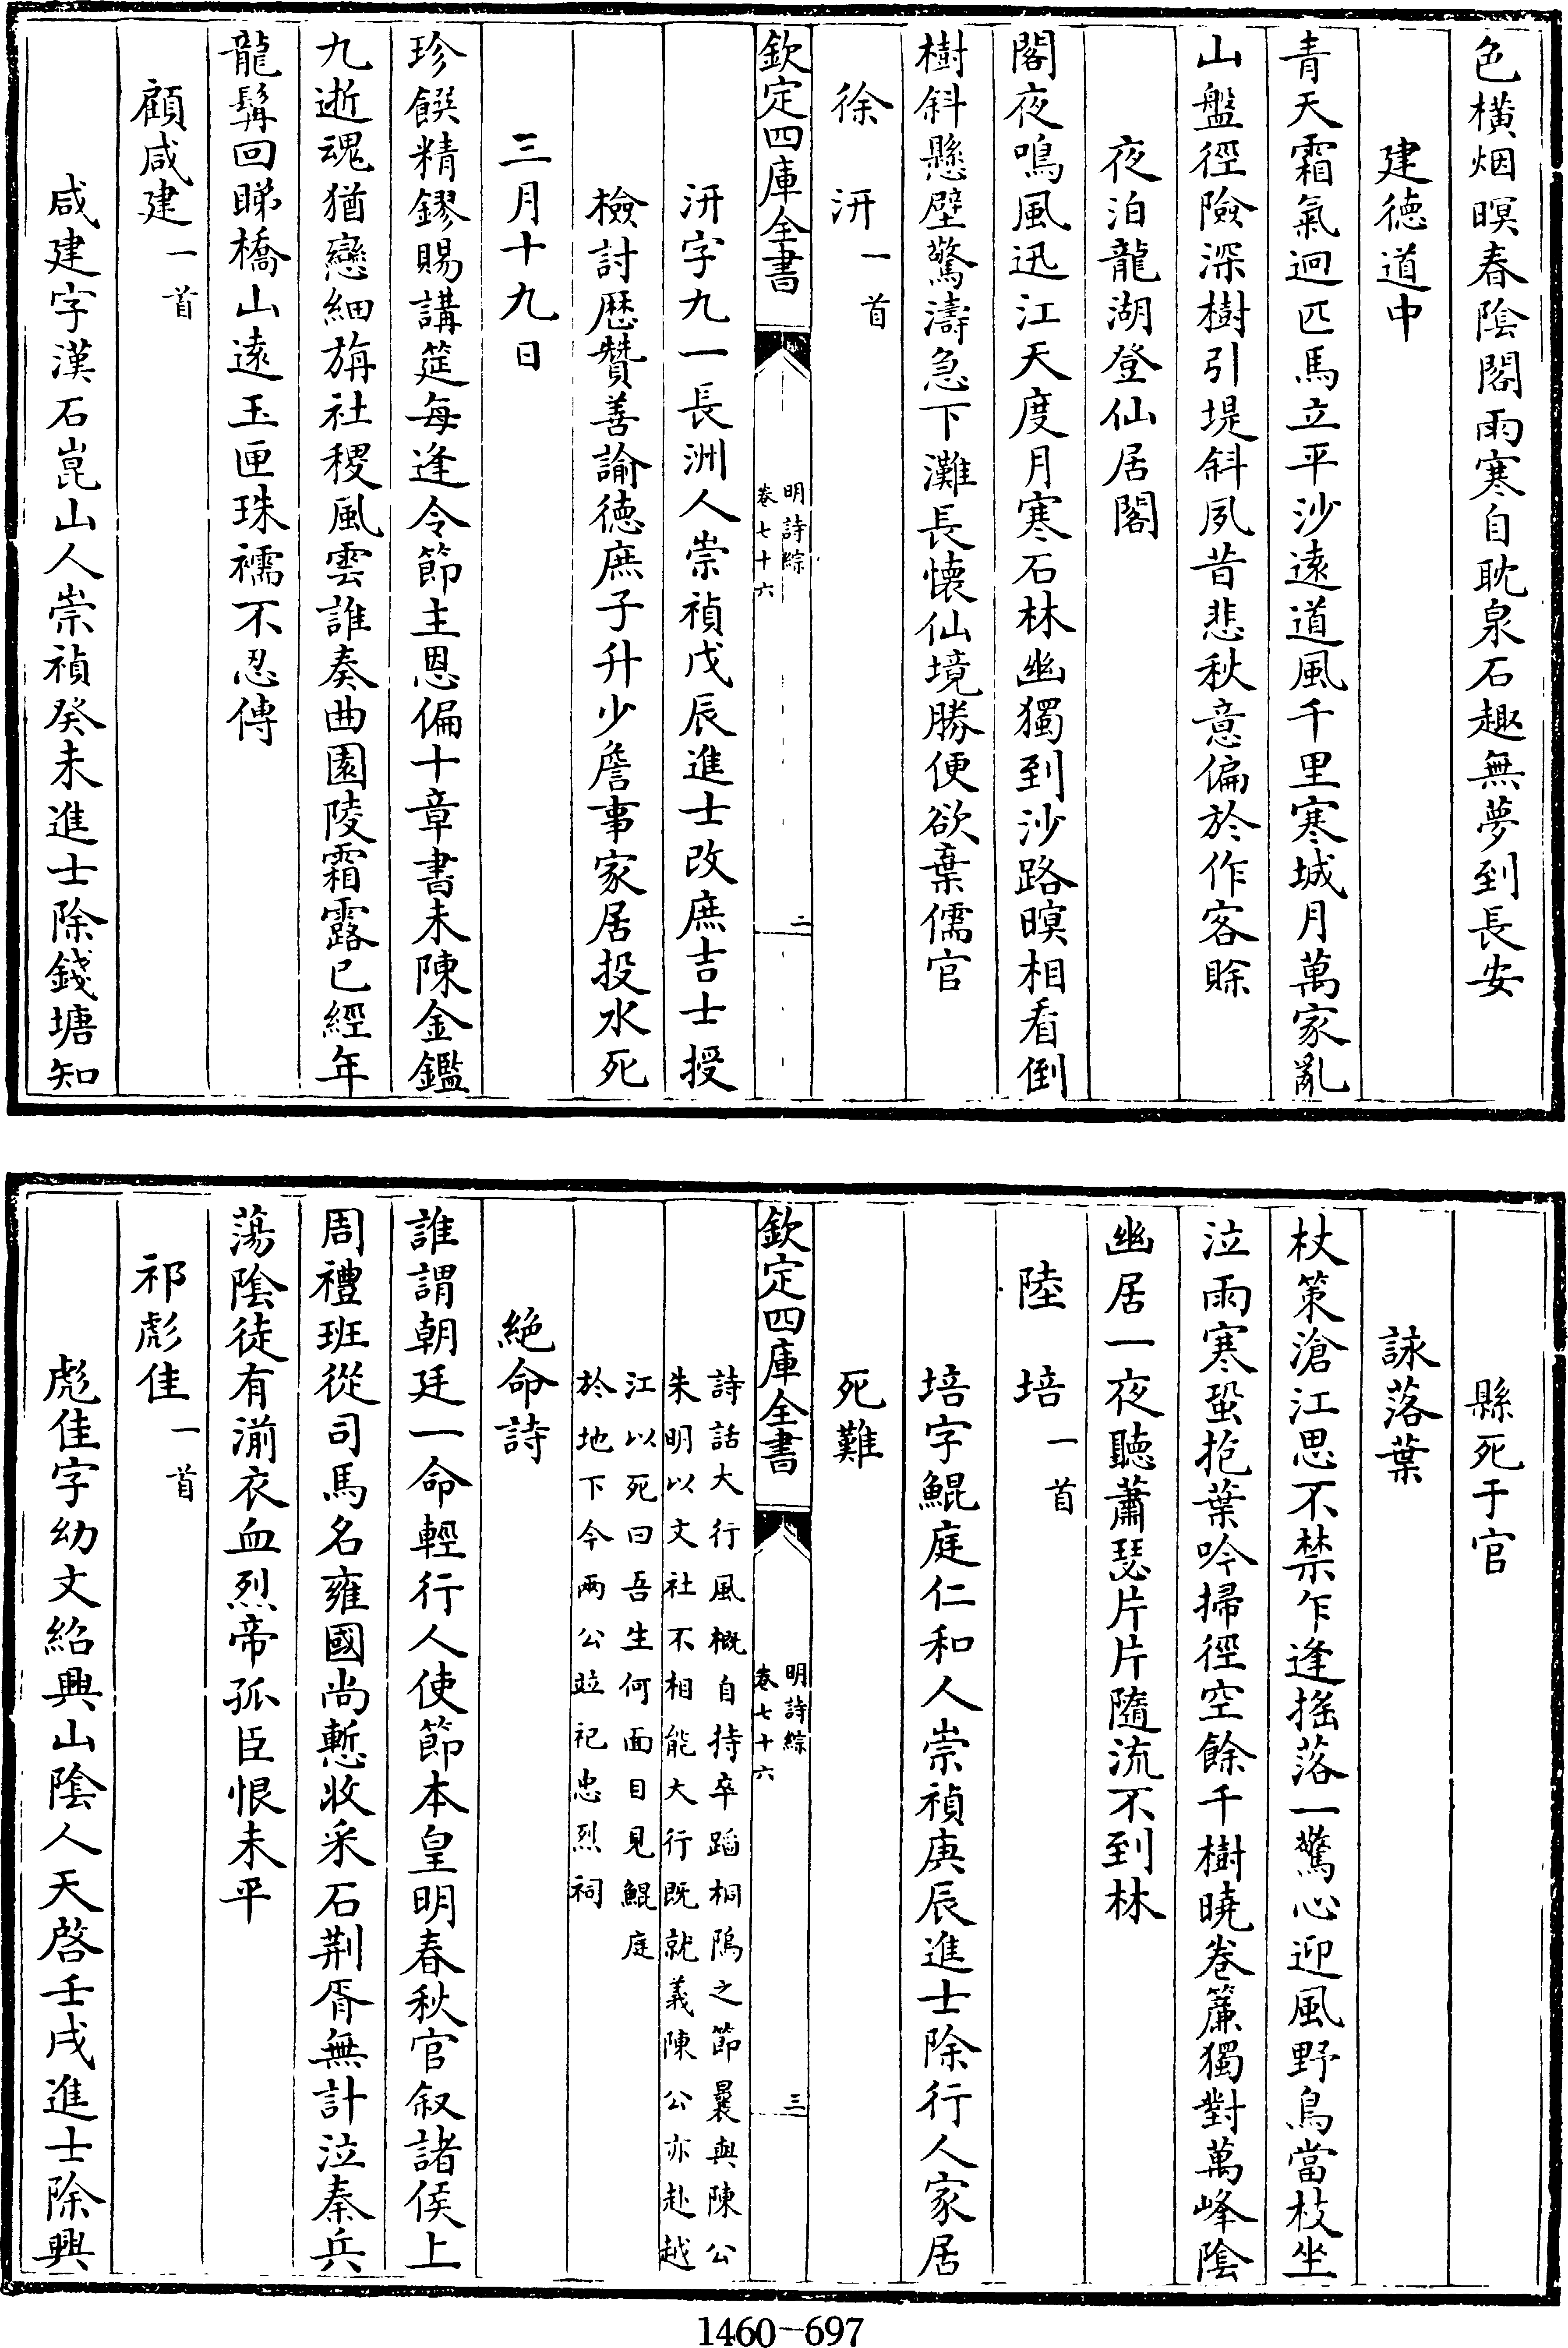 色橫烟暝春陰閣雨寒自耽泉石趣無夢到長安
建徳道中
青天霜氣迥匹馬立平沙逺道風千里寒城月萬家亂
山盤徑險深樹引堤斜夙昔悲秋意偏於作客賖
夜泊龍湖登仙居閣
閣夜鳴風迅江天度月寒石林幽獨到沙路暝相看倒
樹斜懸壁驚濤急下灘長懐仙境勝便欲棄儒官
徐汧一首
欽定四庫全書
明詩綜
卷七十六
二
汧字九一長洲人崇禎戊辰進士改庶吉士授
檢討歴贊善諭徳庶子升少詹事家居投水死
三月十九日
珍饌精鏐賜講筵每逢令節主恩偏十章書未陳金鑑
九逝魂猶戀細旃社稷風雲誰奏曲園陵霜露已經年
龍髯回睇橋山逺玉匣珠襦不忍傳
顧咸建一首
咸建字漢石崑山人崇禎癸未進士除錢塘知
縣死于官
詠落葉
杖策滄江思不禁乍逢搖落一驚心迎風野鳥當枝坐
泣雨寒蛩抱葉吟掃徑空餘千樹曉卷簾獨對萬峰陰
幽居一夜聽蕭瑟片片隨流不到林
陸培一首
培字鯤庭仁和人崇禎庚辰進士除行人家居
死難
欽定四庫全書
明詩綜
卷七十六
三
詩話大行風概自持卒蹈桐隖之節曩與陳公
朱明以文社不相能大行既就義陳公亦赴越
江以死曰吾生何面目見鯤庭
於地下今兩公竝祀忠烈祠
絶命詩
誰謂朝廷一命輕行人使節本皇明春秋官叙諸侯上
周禮班從司馬名雍國尚慙收采石荆胥無計泣秦兵
蕩陰徒有湔衣血烈帝孤臣恨未平
祁彪佳一首
彪佳字幼文紹興山陰人天啓壬戌進士除興
1460-697